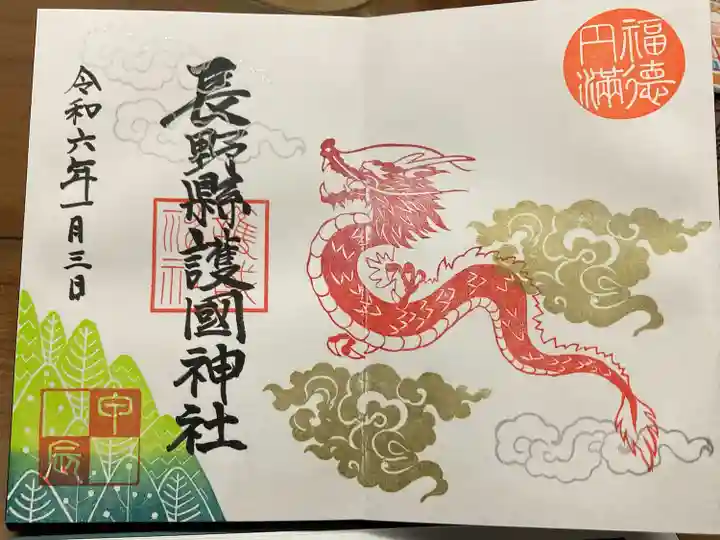 福徳
円満
長野縣護國神社
令和六年一月三日
甲辰